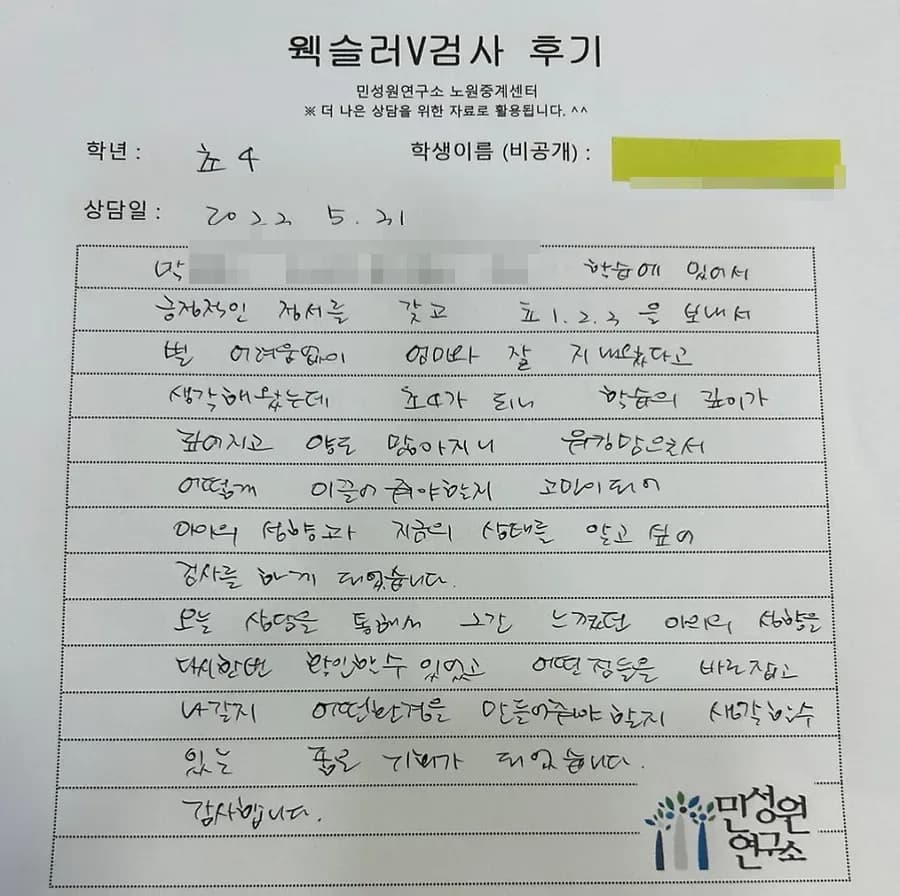 웩슬러V검사 후기
민성원연구소 노원중계센터
※ 더 나은 상담을 위한 자료로 활용됩니다. ^^
학년 : 초4 학생이름 (비공개) :
상담일 : 2022 5. 31
막 학습에 있어서
긍정적인 정서를 갖고 초1.2.3을 보내서
별 어려움없이 엄마와 잘 지내왔다고
생각해왔는데 초4가 되니 학습의 깊이가
깊어지고 양도 많아지니 워킹맘으로서
어떻게 이끌어줘야할지 고민이되어
아이의 성향과 지금의 상태를 알고 싶어
검사를 하게 되었습니다.
오늘 상담을 통해서 그간 느꼈던 아이의 성향을
다시한번 확인할수 있었고 어떤점들을 바로잡고
나갈지 어떤환경을 만들어줘야 할지 생각할수
있는 좋은 기회가 되었습니다.
감사합니다.
민성원
연구소